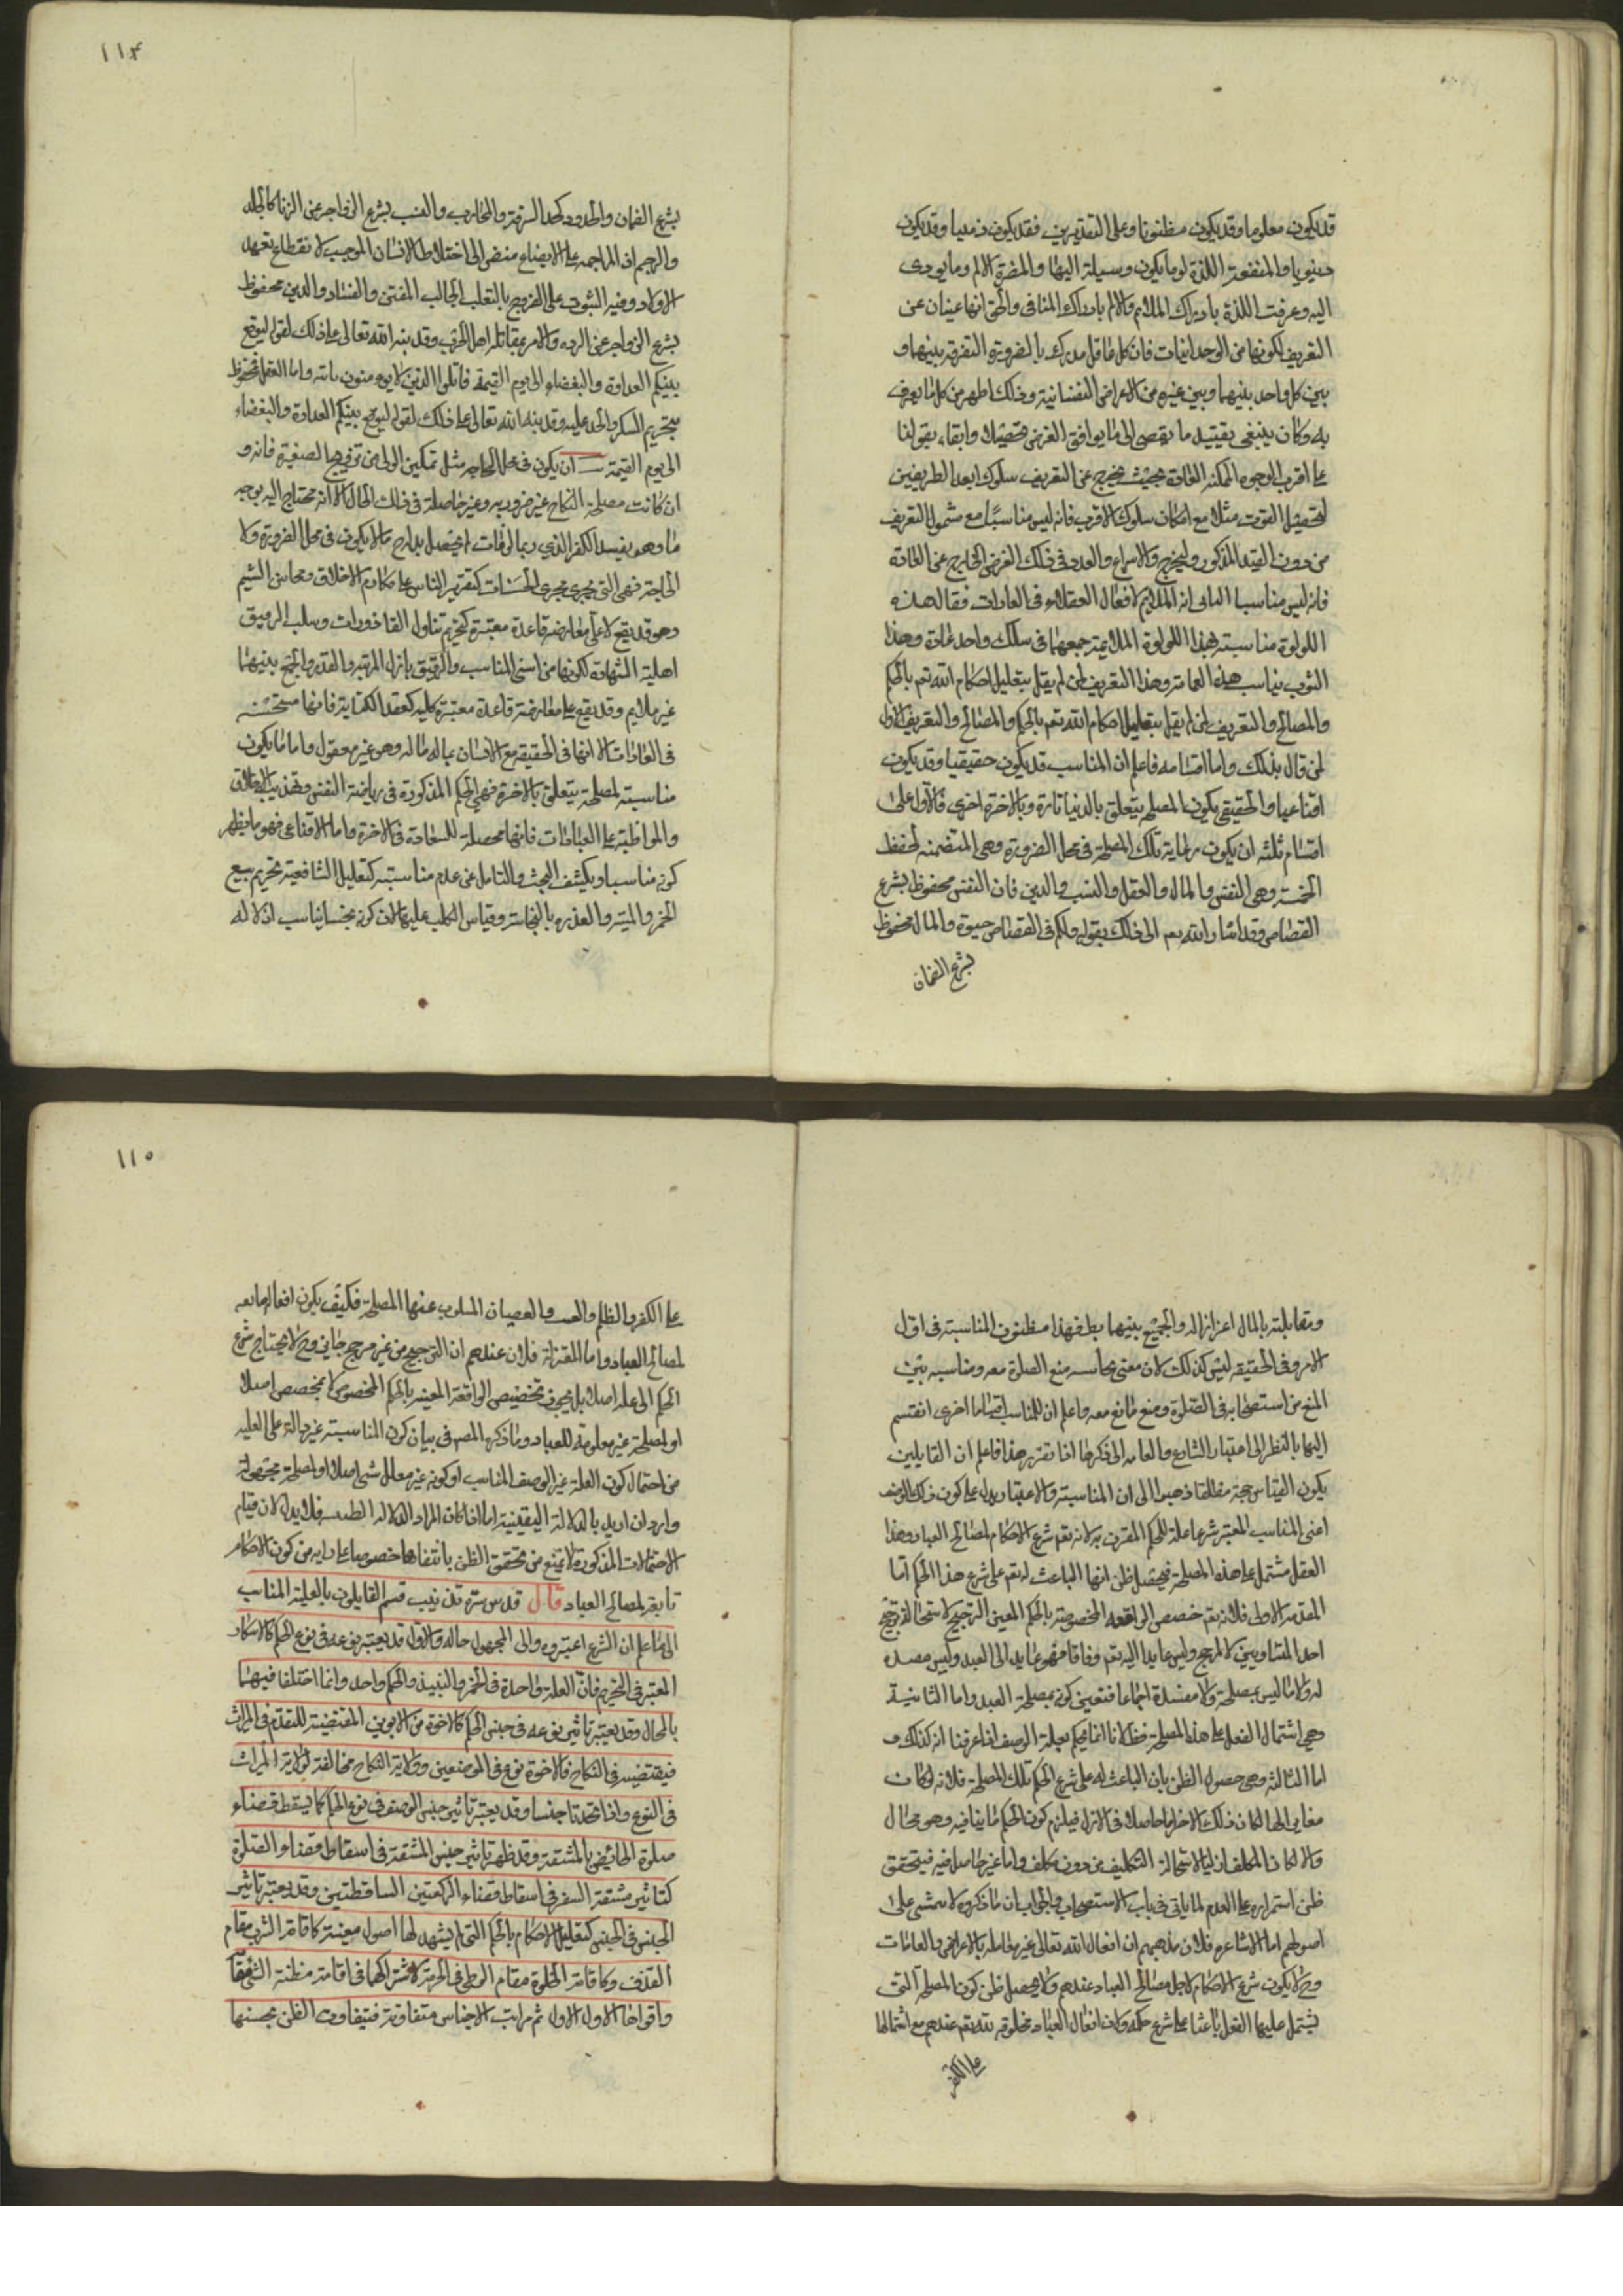 قد يكون معلوما وقد يكون مظنونا وعلى التقديرين فقد يكون دينيا وقد يكون
دنيويا والمنفعة اللذة او ما يكون وسيلة اليها والمضرة الالم وما يودى
اليه وعرفت اللذة بادراك الملايم والالم بادراك المنافى والحق انهما غنيان عن
التعريف لكونهما من الوجدانيات فان كل عاقل يدرك بالضرورة التفرقة بينهما و
بين كل واحد بينهما وبين غيره من الاعراض النفسانية وذلك اظهر من كل ما يعرف
به وكان ينبغى تقييد ما يفضى الى ما يوافق الغرض تحصيلا وابقاء بقولنا
على اقرب الوجوه الممكنه العادة بحيث يخرج عن التعريف سلوك ابعد الطريقين
لتحصيل القوت مثلا مع امكان سلوك الاقرب فانه ليس مناسبا مع شمول التعريف
من دون القيد المذكور وليخرج الاسراع والعدو فى ذلك الغرض الخارج عن العادة
فانه ليس مناسبا الثانى انه الملايم لافعال العقلاء فى العادات فيقال هذه
اللولوة مناسبة لهذا اللولوة الملايمة جمعهما فى سلك واحد عادة وهذا
الثوب يناسب هذه العمامة وهذا التعريف لمن لم يقل بتعليل احكام الله تعم بالحكم
والمصالح والتعريف لمن لم يقل بتعليل احكام الله تعم بالحكم والمصالح والتعريف الاول
لمن قال بذلك واما اقسامه فاعلم ان المناسب قد يكون حقيقيا وقد يكون
اقناعيا والحقيقى يكون لمصلحة يتعلق بالدنيا تارة وبالاخرة اخرى فالاول على
اقسام ثلثه ان يكون رعاية تلك المصلحة فى محل الضرورة وهى المتضمنه لحفظ
الخمسة وهى النفس والمال والعقل والنسب والدين فان النفس محفوظ بشرع
القصاص وقد اشار الله تعم الى ذلك بقوله ولكم فى القصاص حيوة والمال محفوظ
بشرع الضمان
١١٤
بشرع الضمان والحدود كحد السرقة والمحارب والنسب بشرع الزواجر عن الزنا كالجلد
والرجم اذ المزاحمة على الابضاع مفضى الى اختلاط الانسان الموجب لانقطاع تعهد
الاولاد وفيه التوثب على الفروج بالتغلب الجالب الفتن والفساد والدين محفوظ
بشرع الزواجر عن الردة والامر بمقاتلة اهل الحرب وقد بنه الله تعالى على ذلك لقوله ليوقع
بينكم العداوة والبغضاء الى يوم القيمة قاتلوا الذين لا يومنون بالله واما العقل فمحفوظ
بتحريم المسكر والحد عليه وقد بنه الله تعالى على ذلك لقوله ليوقع بينكم العداوة والبغضاء
الى يوم القيمة ان يكون فى محل الحاجه مثل تمكين الولى من تزويج الصغيرة فانه و
ان كانت مصلحة النكاح غير ضروريه وغير حاصلة فى ذلك الحال الا انه محتاج اليه بوجه
ما وهو تقييد الكفر الذي ربما لو فات لم يحصل بدله ج ما لا يكون فى محل الضرورة ولا
الحاجة فهى التى تجرى مجرى الحسنات كتقرير الناس على مكارم الاخلاق ومحاسن الشيم
وهو قد يقع لا على معارضة قاعدة معتبرة كتحريم تناول القاذورات وسلب الرقيق
اهلية الشهادة لكونها من اسنى المناسب والرقيق نازل المرتبة والقدر والجمع بينهما
غير ملايم وقد يقع على معارضة قاعدة معتبرة كليه كعقد الكتابة فانها مستحسنه
فى العادات الا انها فى الحقيقة مع الانسان بماله ماله وهو غير معقول واما ما يكون
مناسبته لمصلحة يتعلق بالاخرة فهى الحكم المذكورة فى رياضة النفس وتهذيب الاخلاق
والمواظبة على العبادات فانها محصلة للسعادة فى الاخرة واما الاقناعى فهو ما يظهر
كونه مناسبا ويكشف البحث والتامل عن عدم مناسبته كتعليل الشافعية تحريم بيع
الخمر والميتة والعذرة بالنجاسة وقياس الكلب عليها لان كونه نجسا يناسب اذلاله
ومقابلته بالمال اعزاز له والجمع بينهما بط فهذا مظنون المناسبة فى اول
الامر وفى الحقيقة ليس كذلك لان معنى نجاسته منع الصلوة معه ومناسبه بين
المنع من استصحابه فى الصلوة ومنع مانع معه واعلم ان للمناسب اقساما اخرى انقسم
اليها بالنظر الى اعتبار الشارع والعامه الى ذكرها اذا تقرر هذا فاعلم ان القايلين
بكون القياس حجة مطلقا ذهبوا الى ان المناسبة والاعتبار يدل على كون ذلك الوصف
اعنى المناسب المعتبر شرعا علة للحكم المقرون به لانه تعم شرع الاحكام لمصالح العباد وهذا
العقل مشتمل على هذه المصلحة فيحصل ظن انها الباعث له تعم على شرع هذا الحكم اما
المقدمة الاولى فلانه تعم خصص الواقعه المخصوصة بالحكم المعين الترجيح لاستحالة ترجيح
احد المتساويين لا لمرجح وليس عايدا اليه تعم وفاقا فهو عايد الى العبد وليس مفسدة
له ولا ما ليس بمصلحة ولا مفسدة اجماعا فتعين كونه بمصلحة العبد واما الثانية
وهى اشتمال الفعل على هذا المصلحة فظ لانا انما نحكم بعلة الوصف اذا عرفنا انه كذلك و
اما الثالثة وهى حصول الظن بان الباعث له على شرع الحكم تلك المصلحة فلانه لو كان
مغاير لها لكان ذلك الاخر اما حاصلا فى الازل فيلزم كون الحكم ما ينافيه وهو محال
والا لكان المكلف ازليا لاستحالة التكليف من دون مكلف واما غير حاصل فيه فيتحقق
ظن استمراره على العدم لما ياتى فى باب الاستصحاب والجواب ان ما ذكروه لا يتمشى على
اصولهم اما الاشاعره فلان مذهبهم ان افعال الله تعالى غير معلله بالاغراض والغايات
وح لا يكون شرع الاحكام لاجل مصالح العباد عندهم ولا يحصل ظن كون المصلحة التى
يشتمل عليها الفعل باعثا على شرع حكمه ولان افعال العباد مخلوقه لله تعم عندهم مع اشتمالها
على الكفر
١١٥
على الكفر والظلم والعبث والعصيان المسلوب عنها المصلحة فكيف يكون افعاله تابعه
لمصالح العباد واما المعتزلة فلان عندهم ان الترجيح من غير مرجح جايز وح لا يحتاج شرع
الحكم الى علة اصلا بل يجوز تخصيص الواقعة المعينه بالحكم المخصوص لا بمخصص اصلا
او لمصلحة غير معلومة للعباد وما ذكره المصم فى بيان كون المناسبة غير دالة على العليه
من احتمال كون العلة غير الوصف المناسب او كونه غير معلل بشى اصلا او لمصلحة مجهولة
وارد ان اريد بالدلالة اليقينية اما اذا كان المراد الدلالة الظنيه فلا يدل لان قيام
الاحتمالات المذكورة لا يمنع من تحقق الظن بانتفاها خصوصا على رايه من كون الاحكام
تابعة لمصالح العباد قال قدس سره تذنيب قسم القايلون بالعلية المناسب
الى ما علم ان الشرع اعتبره والى المجهول حاله والاول قد يعتبر نوعه فى نوع الحكم كالاسكار
المعتبر فى التحريم فان العلة واحدة فى الخمر والنبيذ والحكم واحد وانما اختلفا فيهما
بالمحال وقد يعتبر تاثير نوعه فى جنس الحكم كالاخوة من الابوين المقتضية للتقدم فى الميراث
فيقتضيه فى النكاح فالاخوة نوع فى الموضعين وولاية النكاح مخالفة لولاية الميراث
فى النوع وان اتحدتا جنسا وقد يعتبر تاثير جنس الوصف فى نوع الحكم كما يسقط قضاء
صلوة الحائض بالمشقة وقد ظهر تاثير جنس المشقة فى اسقاط قضاء الصلوة
كتاثير مشقة السفر فى اسقاط قضاء الركعتين الساقطتين وقد يعتبر تاثير
الجنس فى الجنس كتعليل الاحكام بالحكم التى لم يشهد لها اصول معينة كاقامة الشرب مقام
القذف وكاقامة الخلوة مقام الوطى فى الحرمة لاشتراكهما فى اقامة مظنة الشى مقامه
واقواها الاول الاول ثم مراتب الاجناس متفاوتة فيتفاوت الظن بحسبها